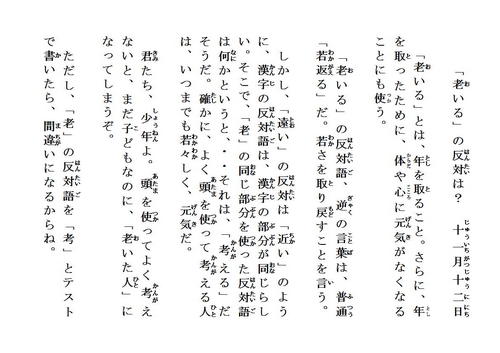 「老いる」の反対は？　十一月十二日
「老いる」とは、年を取ること。さらに、年
を取ったために、体や心に元気がなくなる
ことにも使う。
「老いる」の反対語、逆の言葉は、普通
「若返る」だ。若さを取り戻すことを言う。
しかし、「遠い」の反対は「近い」のよう
に、漢字の反対語は、漢字の部分が同じらし
い。そこで、「老」の同じ部分を使った反対語
は何かというと、・・それは、「考える」だ
そうだ。確かに、よく頭を使って考える人
は、いつまでも若々しく、元気だ。
君たち、少年よ。頭を使ってよく考え
ないと、まだ子どもなのに、「老いた人」に
なってしまうぞ。
ただし、「老」の反対語を「考」とテスト
で書いたら、間違いになるからね。